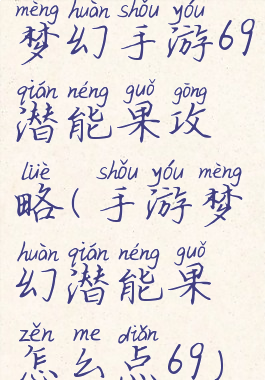 mèng huàn shǒu yóu
梦幻手游69
qián néng guǒ gōng
潜能果攻
lüè shǒu yóu mèng
略(手游梦
huàn qián néng guǒ
幻潜能果
zěn me diǎn
怎么点69)